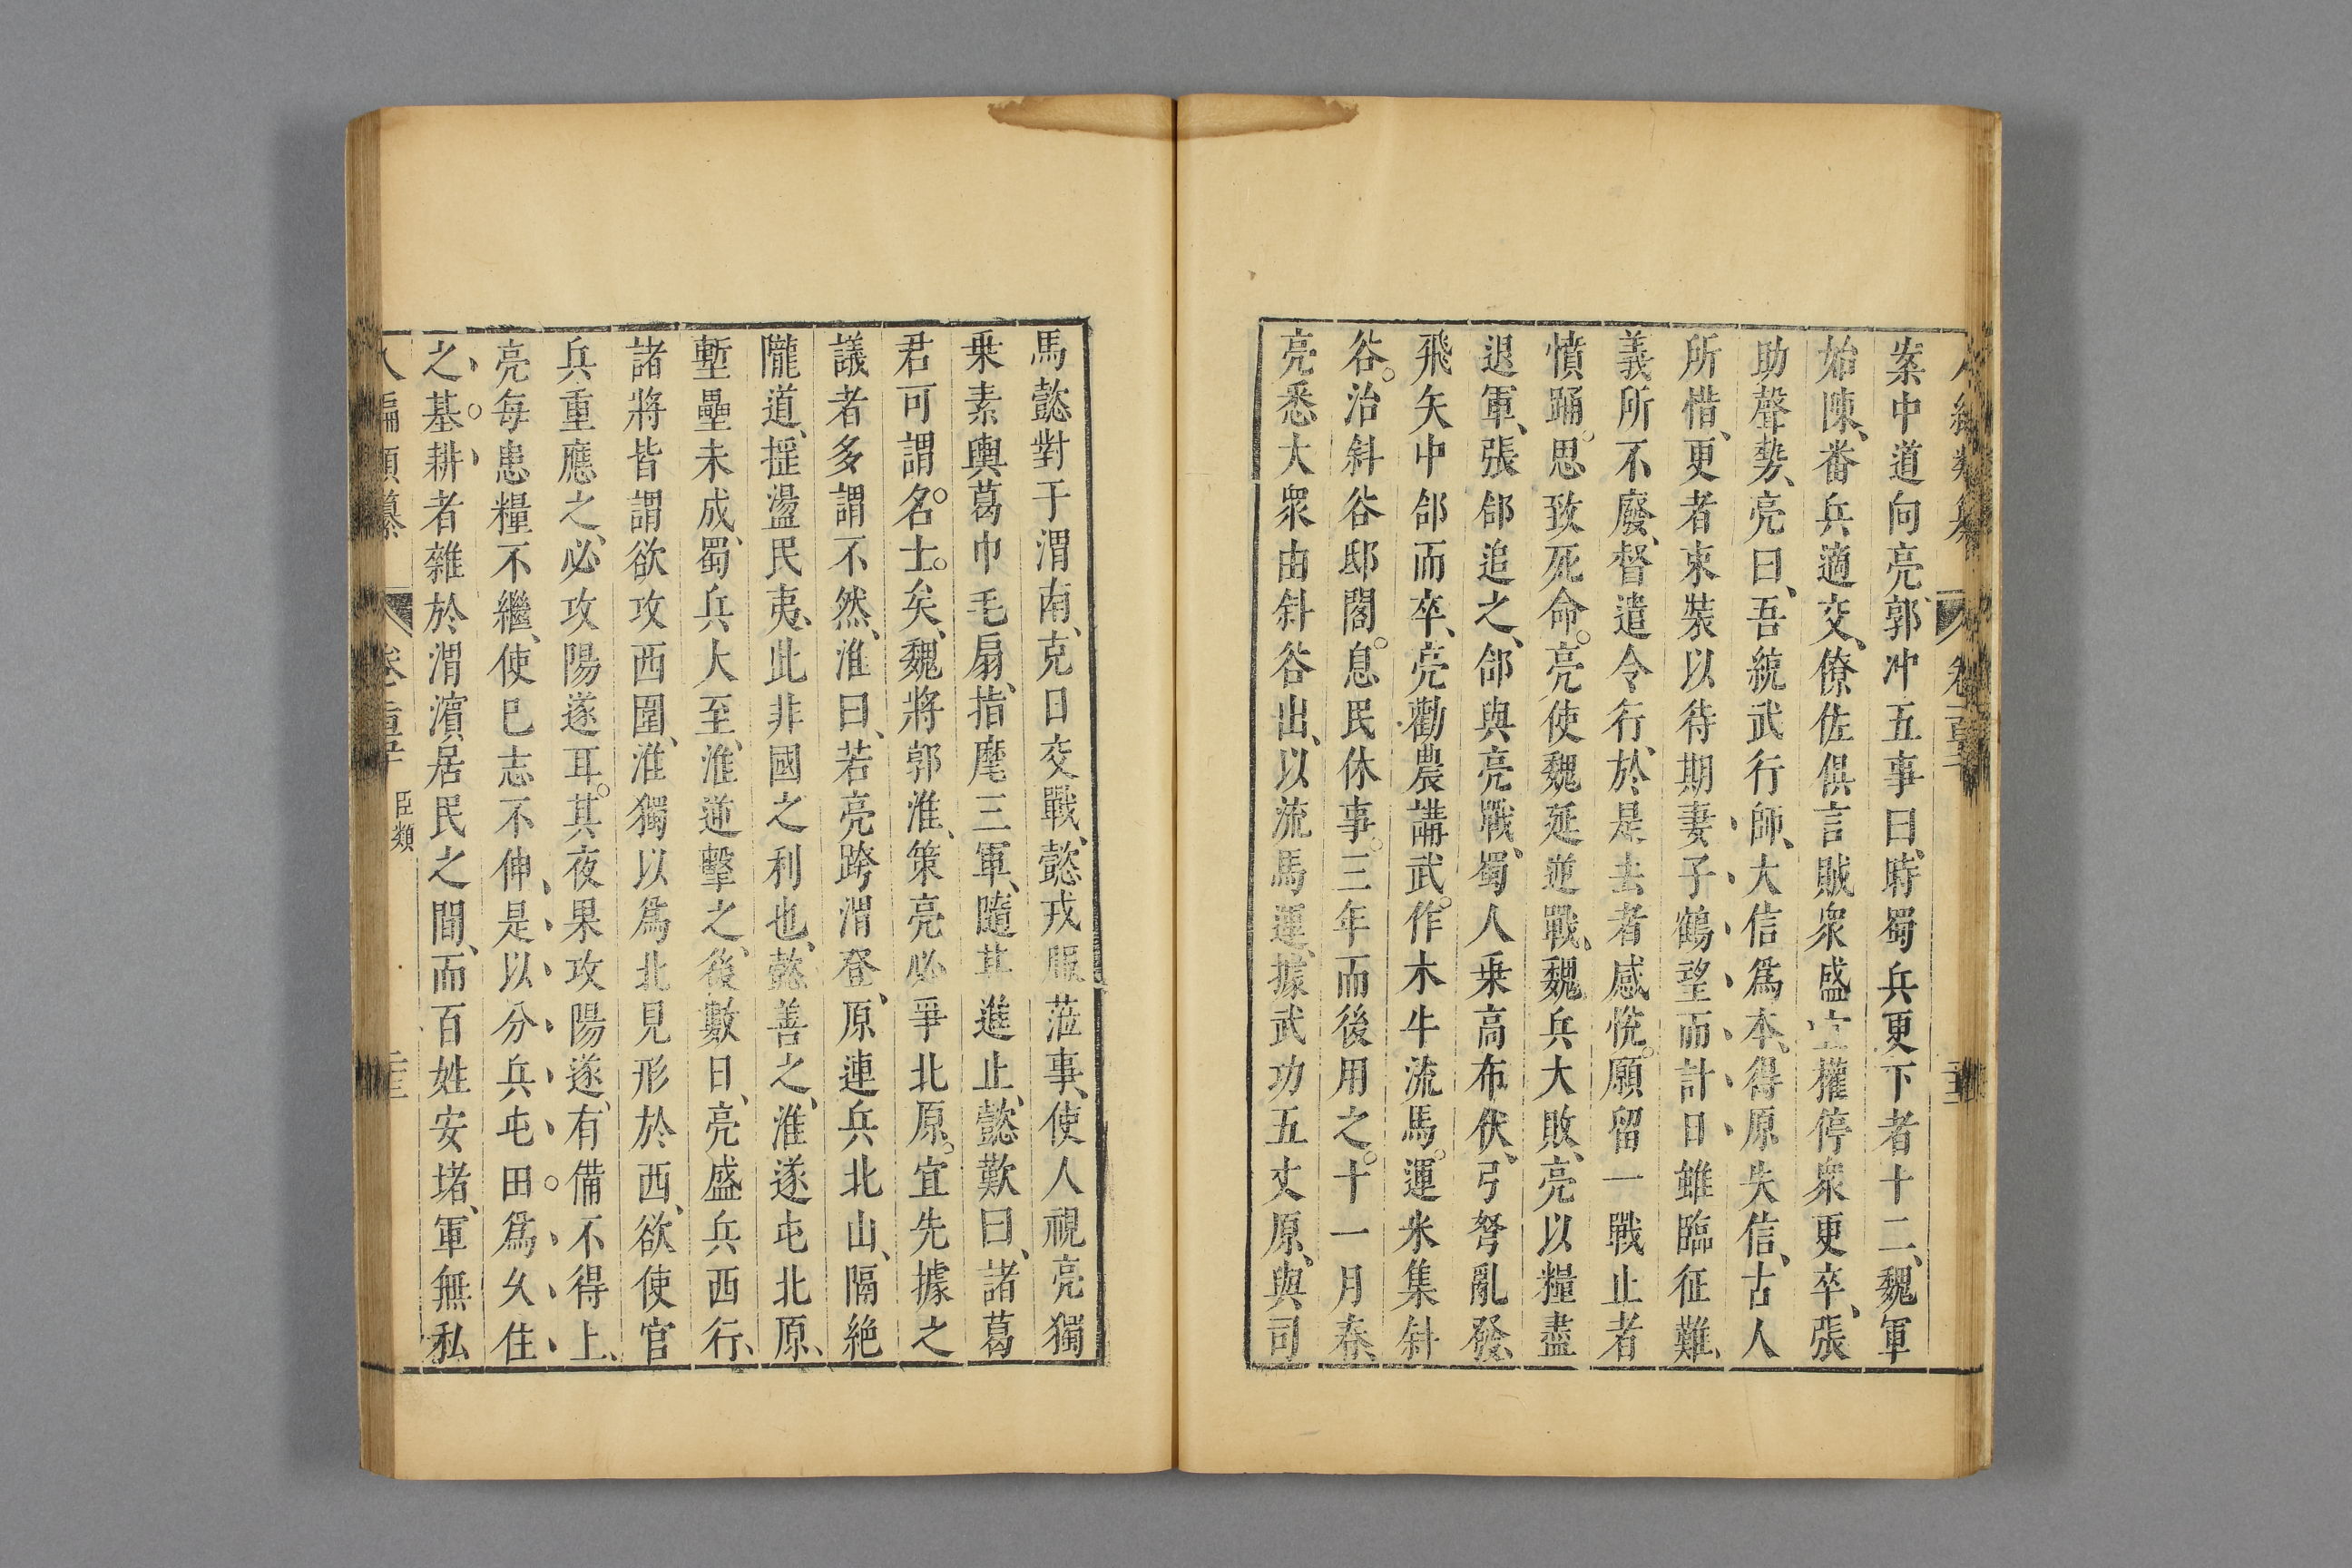 案中道向亮郭冲五事曰、時蜀兵更下者十二、魏軍
始陳、番兵適交、僚佐俱言賊衆盛 權停衆更卒、張
助聲勢、亮曰、吾統武行師、大信爲本、得原失信、古人
所惜、更者束裝以待期妻子鶴望而計日雖臨征難、
義所不廢、督遣令行、於是去者感悅。願留一戰止者
憤踊。思致死命。亮使魏延逆戰、魏兵大敗、亮以糧盡
退軍、張郃追之、郃與亮戰、蜀人乗高布伏、弓弩亂發、
飛矢中郃而卒、亮勸農講武。作木牛流馬。運米集斜
谷。治斜谷邸閣。息民休事。三年而後用之。十一月春、
亮悉大衆由斜谷出、以流馬運、據武功五丈原、與司
馬懿對于渭南、克日交戰、懿戎服蒞事、使人視亮獨
乗素輿葛巾毛扇、指麾三軍、隨其進止、懿歎曰、諸葛
君可謂名士矣、魏將郭淮、策亮必爭北原。宜先據之
議者多謂不然、淮曰、若亮跨渭登、原連兵北山、隔絶
隴道、揺盪民夷、此非國之利也、懿善之、淮遂屯北原、
塹壘未成、蜀兵大至、淮逆擊之、後數日、亮盛兵西行、
諸將皆謂欲攻西圍、淮獨以爲北見形於西、欲使官
兵重應之、必攻陽遂耳。其夜果攻陽遂、有備不得上、
亮每患糧不繼、使已志不伸、是以分兵屯田爲久住
之基耕者雜於渭濵居民之間、而百姓安堵、軍無私
編類纂 卷 臣類